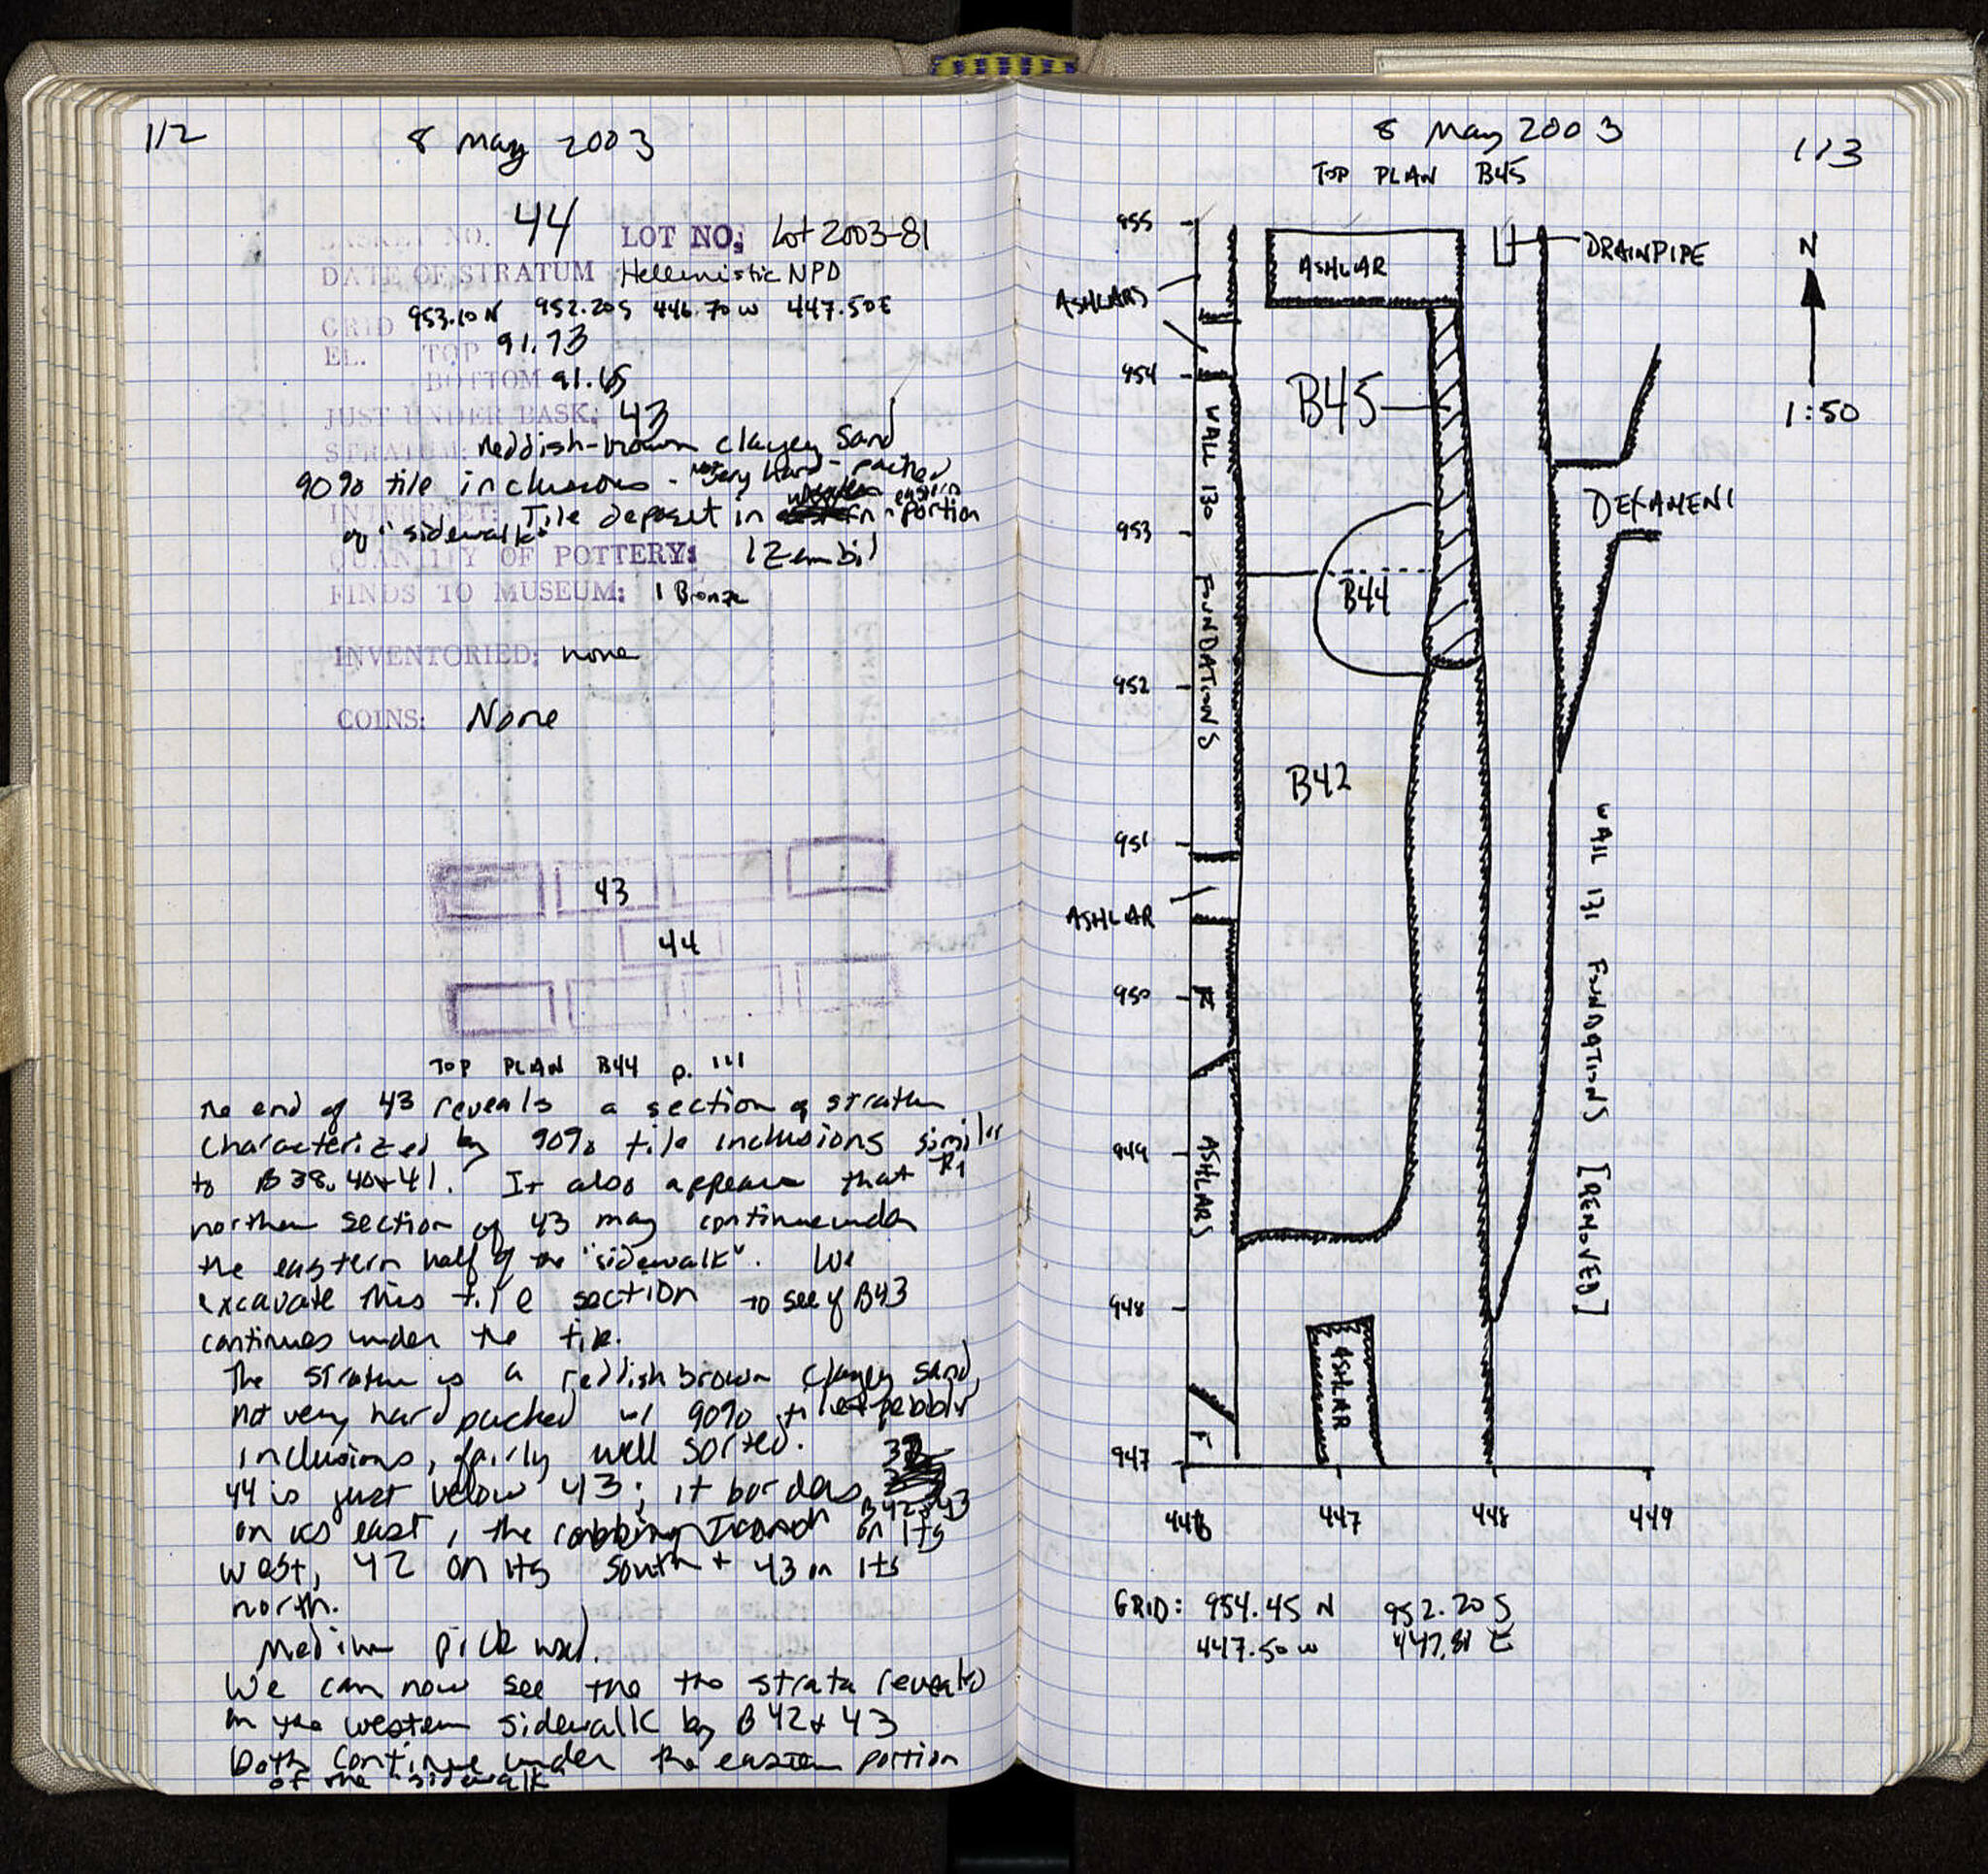 112
8 May 2003
BASKET NO. 44 LOT NO: Lot 2003-81
DATE OF STRATUM Hellenistic NPD
GRID 953.10N 952.20S 446.70W 447.50E
EL. TOP 91.73
BOTTOM 91.65
JUST UNDER BASK: 43
STRATUM: Reddish-brown clayey sand
90% tile inclusions - not very hard-packed
INTERPRET: Tile deposit in eastern portion
of "sidewalk"
QUANTITY OF POTTERY: 1 Zembil
FINDS TO MUSEUM: 1 Bronze
INVENTORIED: none
COINS: None
43
44
TOP PLAN B44 p. 111
The end of 43 reveals a section of stratum
characterized by 90% tile inclusions similar
to B 38, 40 + 41. It also appears that the
northern section of 43 may continue under
the eastern half of the "sidewalk". We
excavate this tile section to see if B43
continues under the tile.
The stratum is a reddish brown clayey sand,
not very hard packed w/ 90% tile + pebbly
inclusions, fairly well sorted.
44 is just below 43; it borders
B42 + 43
on its east, the robbing trench on its
west, 42 on its south + 43 on its
north.
Medium pick used.
We can now see the the strata revealed
in the western sidewalk by B 42 + 43
both continue under the eastern portion
of the "sidewalk"
8 May 2003
113
TOP PLAN B45
955
ASHLAR
DRAINPIPE
N
ASHLARS
954
B45
1:50
WALL 130 FOUNDATIONS
953
DEXAMENI
B44
952
B42
951
WALL 131 FOUNDATIONS [REMOVED]
ASHLAR
950
949
ASHLARS
948
ASHLAR
947
446 447 448 449
GRID: 954.45 N 952.20 S
447.50 W 447.81 E